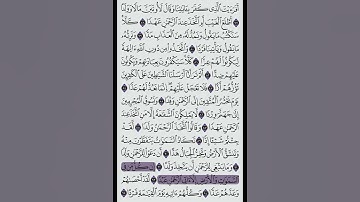 أَفَرَءَيْتَ ٱلَّذِى كَفَرَ بِـَٔايَٰتِنَا وَقَالَ لَأُوتَيَنَّ مَالًا وَوَلَدًا ٧٧
أَطَّلَعَ ٱلْغَيْبَ أَمِ ٱتَّخَذَ عِندَ ٱلرَّحْمَٰنِ عَهْدًا ٧٨ كَلَّا
سَنَكْتُبُ مَا يَقُولُ وَنَمُدُّ لَهُۥ مِنَ ٱلْعَذَابِ مَدًّا ٧٩ وَنَرِثُهُۥ
مَا يَقُولُ وَيَأْتِينَا فَرْدًا ٨٠ وَٱتَّخَذُوا۟ مِن دُونِ ٱللَّهِ ءَالِهَةً
لِّيَكُونُوا۟ لَهُمْ عِزًّا ٨١ كَلَّا سَيَكْفُرُونَ بِعِبَادَتِهِمْ وَيَكُونُونَ
عَلَيْهِمْ ضِدًّا ٨٢ أَلَمْ تَرَ أَنَّآ أَرْسَلْنَا ٱلشَّيَٰطِينَ عَلَى ٱلْكَٰفِرِينَ
تَؤُزُّهُمْ أَزًّا ٨٣ فَلَا تَعْجَلْ عَلَيْهِمْ إِنَّمَا نَعُدُّ لَهُمْ عَدًّا ٨٤
يَوْمَ نَحْشُرُ ٱلْمُتَّقِينَ إِلَى ٱلرَّحْمَٰنِ وَفْدًا ٨٥ وَنَسُوقُ ٱلْمُجْرِمِينَ
إِلَىٰ جَهَنَّمَ وِرْدًا ٨٦ لَّا يَمْلِكُونَ ٱلشَّفَٰعَةَ إِلَّا مَنِ ٱتَّخَذَ عِندَ
ٱلرَّحْمَٰنِ عَهْدًا ٨٧ وَقَالُوا۟ ٱتَّخَذَ ٱلرَّحْمَٰنُ وَلَدًا ٨٨ لَّقَدْ جِئْتُمْ
شَيْـًٔا إِدًّا ٨٩ تَكَادُ ٱلسَّمَٰوَٰتُ يَتَفَطَّرْنَ مِنْهُ
وَتَنشَقُّ ٱلْأَرْضُ وَتَخِرُّ ٱلْجِبَالُ هَدًّا ٩٠ أَن دَعَوْا۟ لِلرَّحْمَٰنِ وَلَدًا
٩١ وَمَا يَنۢبَغِى لِلرَّحْمَٰنِ أَن يَتَّخِذَ وَلَدًا ٩٢ إِن كُلُّ مَن فِى
ٱلسَّمَٰوَٰتِ وَٱلْأَرْضِ إِلَّآ ءَاتِى ٱلرَّحْمَٰنِ عَبْدًا ٩٣ لَّقَدْ أَحْصَىٰهُمْ
وَعَدَّهُمْ عَدًّا ٩٤ وَكُلُّهُمْ ءَاتِيهِ يَوْمَ ٱلْقِيَٰمَةِ فَرْدًا ٩٥